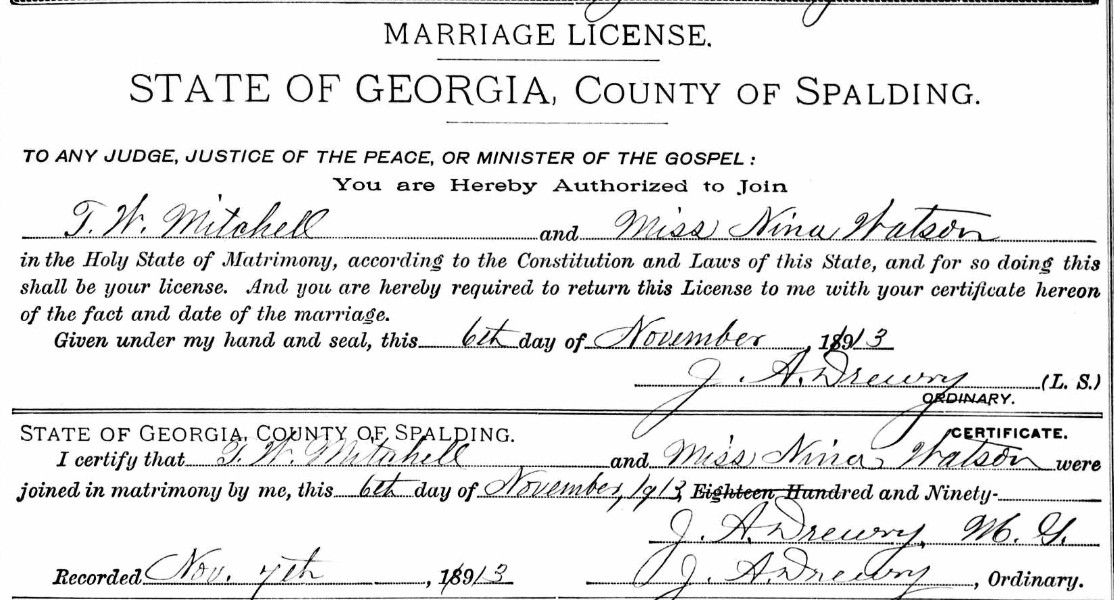 MARRIAGE LICENSE.
STATE OF GEORGIA, COUNTY OF SPALDING.
TO ANY JUDGE, JUSTICE OF THE PEACE, OR MINISTER OF THE GOSPEL:
You are Hereby Authorized to Join
T. W. Mitchell and Miss Nina Watson
in the Holy State of Matrimony, according to the Constitution and Laws of this State, and for so doing this
shall be your license. And you are hereby required to return this License to me with your certificate hereon
of the fact and date of the marriage.
Given under my hand and seal, this 6th day of November, 1913
J. A. Drewry (L. S.)
ORDINARY.
STATE OF GEORGIA, COUNTY OF SPALDING. CERTIFICATE.
I certify that T. W. Mitchell and Miss Nina Watson were
joined in matrimony by me, this 6th day of November, 1913, Eighteen Hundred and Ninety-
J. A. Drewry, M. G.
Recorded Nov. 7th, 1913 J. A. Drewry, Ordinary.